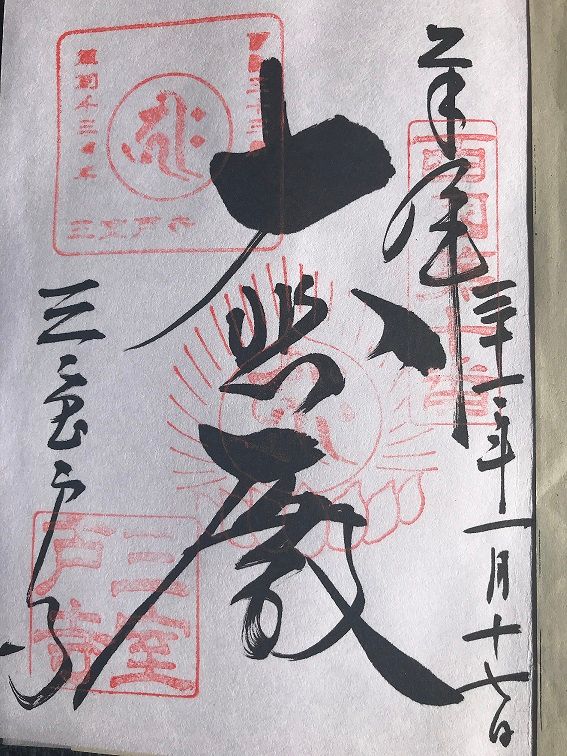 奉拝
三十一年一月十七日
西国第十番
大悲殿
三室戸寺
三室戸寺
三室戸寺